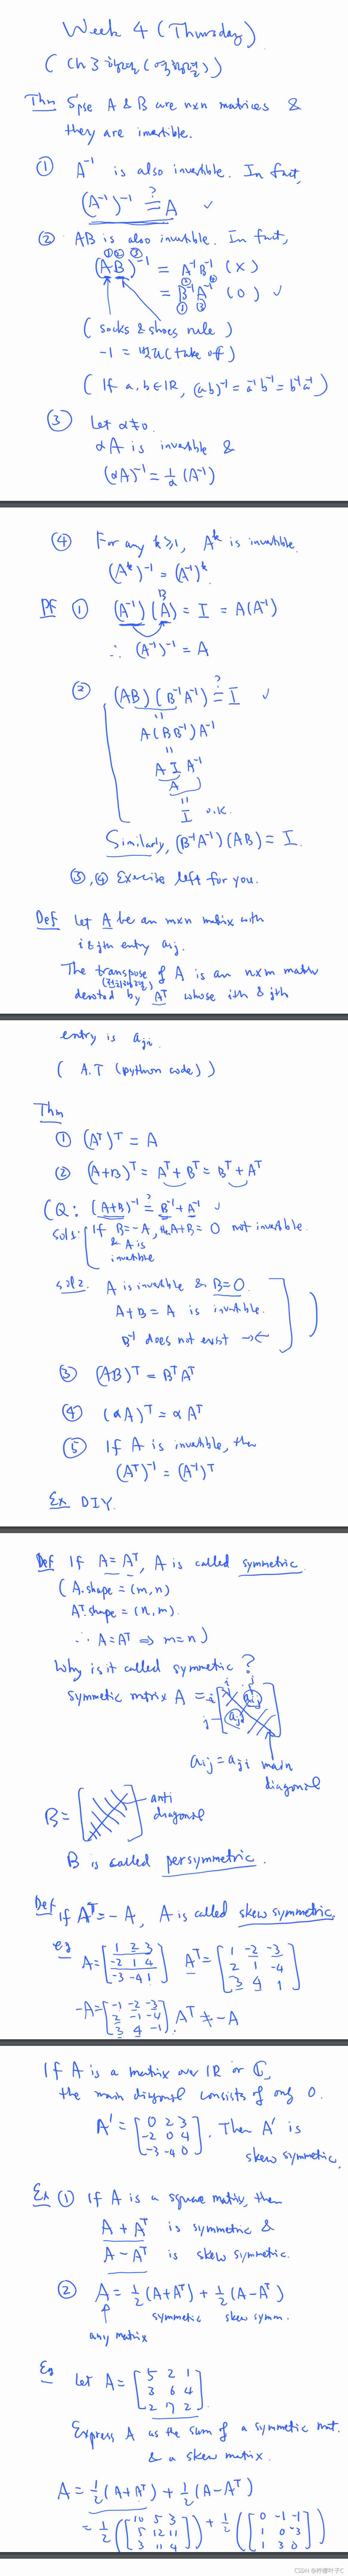 Week 4 (Thursday)
( Ch 3 행렬 (역행렬) )
Thm Spse A & B are n×n matrices &
they are invertible.
① A⁻¹ is also invertible. In fact,
(A⁻¹)⁻¹ ?= A ✓
② AB is also invertible. In fact,
① ② ③
(AB)⁻¹ = A⁻¹B⁻¹ (X)
= B⁻¹A⁻¹ (O) ✓
( socks & shoes rule )
-1 = 벗다 (take off)
( If a, b ∈ ℝ, (ab)⁻¹ = a⁻¹b⁻¹ = b⁻¹a⁻¹ )
③ Let α≠0.
αA is invertible &
(αA)⁻¹ = 1/α (A⁻¹)
④ For any k≥1, Aᵏ is invertible.
(Aᵏ)⁻¹ = (A⁻¹)ᵏ
B
Pf ① (A⁻¹)(A) = I = A(A⁻¹)
∴ (A⁻¹)⁻¹ = A
② (AB)(B⁻¹A⁻¹) ?= I ✓
=
A(BB⁻¹)A⁻¹
=
A I A⁻¹
A
=
I o.k.
Similarly, (B⁻¹A⁻¹)(AB) = I.
③, ④ Exercise left for you.
Def Let A be an m×n matrix with
i & jth entry aij.
The transpose of A is an n×m matrix
(전치행렬)
denoted by Aᵀ whose ith & jth
entry is aji.
( A.T (python code) )
Thm
① (Aᵀ)ᵀ = A
② (A+B)ᵀ = Aᵀ + Bᵀ = Bᵀ + Aᵀ
(Q: (A+B)⁻¹ ?= B⁻¹ + A⁻¹
sol1: If B=-A, then A+B = 0 not invertible.
& A is
invertible
sol2. A is invertible & B=0.
A+B = A is invertible.
B⁻¹ does not exist →← )
③ (AB)ᵀ = BᵀAᵀ
④ (αA)ᵀ = αAᵀ
⑤ If A is invertible, then
(Aᵀ)⁻¹ = (A⁻¹)ᵀ
Ex DIY.
Def If A = Aᵀ, A is called symmetric.
( A.shape = (m, n)
Aᵀ.shape = (n, m).
∴ A = Aᵀ ⇒ m=n )
Why is it called symmetric?
i j
symmetric matrix A = i aij
j aji
aij = aji main
diagonal
B = anti
diagonal
B is called persymmetric.
Def If Aᵀ = -A, A is called skew symmetric.
eg A = [1 2 3 Aᵀ = [1 -2 -3
-2 1 4 2 1 -4
-3 -4 1] 3 4 1]
-A = [-1 -2 -3
2 -1 -4
3 4 -1]. Aᵀ ≠ -A
If A is a matrix over ℝ or ℂ,
the main diagonal consists of only 0.
A' = [0 2 3
-2 0 4
-3 -4 0]. Then A' is
skew symmetric.
Ex ① If A is a square matrix, then
A + Aᵀ is symmetric &
A - Aᵀ is skew symmetric.
② A = 1/2 (A+Aᵀ) + 1/2 (A-Aᵀ)
↑ symmetric skew symm.
any matrix
Eg Let A = [5 2 1
3 6 4
2 7 2].
Express A as the sum of a symmetric mat.
& a skew matrix.
A = 1/2 (A+Aᵀ) + 1/2 (A-Aᵀ)
= 1/2 ([10 5 3 ) + 1/2 ([0 -1 -1 )
5 12 11 1 0 -3
3 11 4] 1 3 0]
CSDN @柠檬叶子C